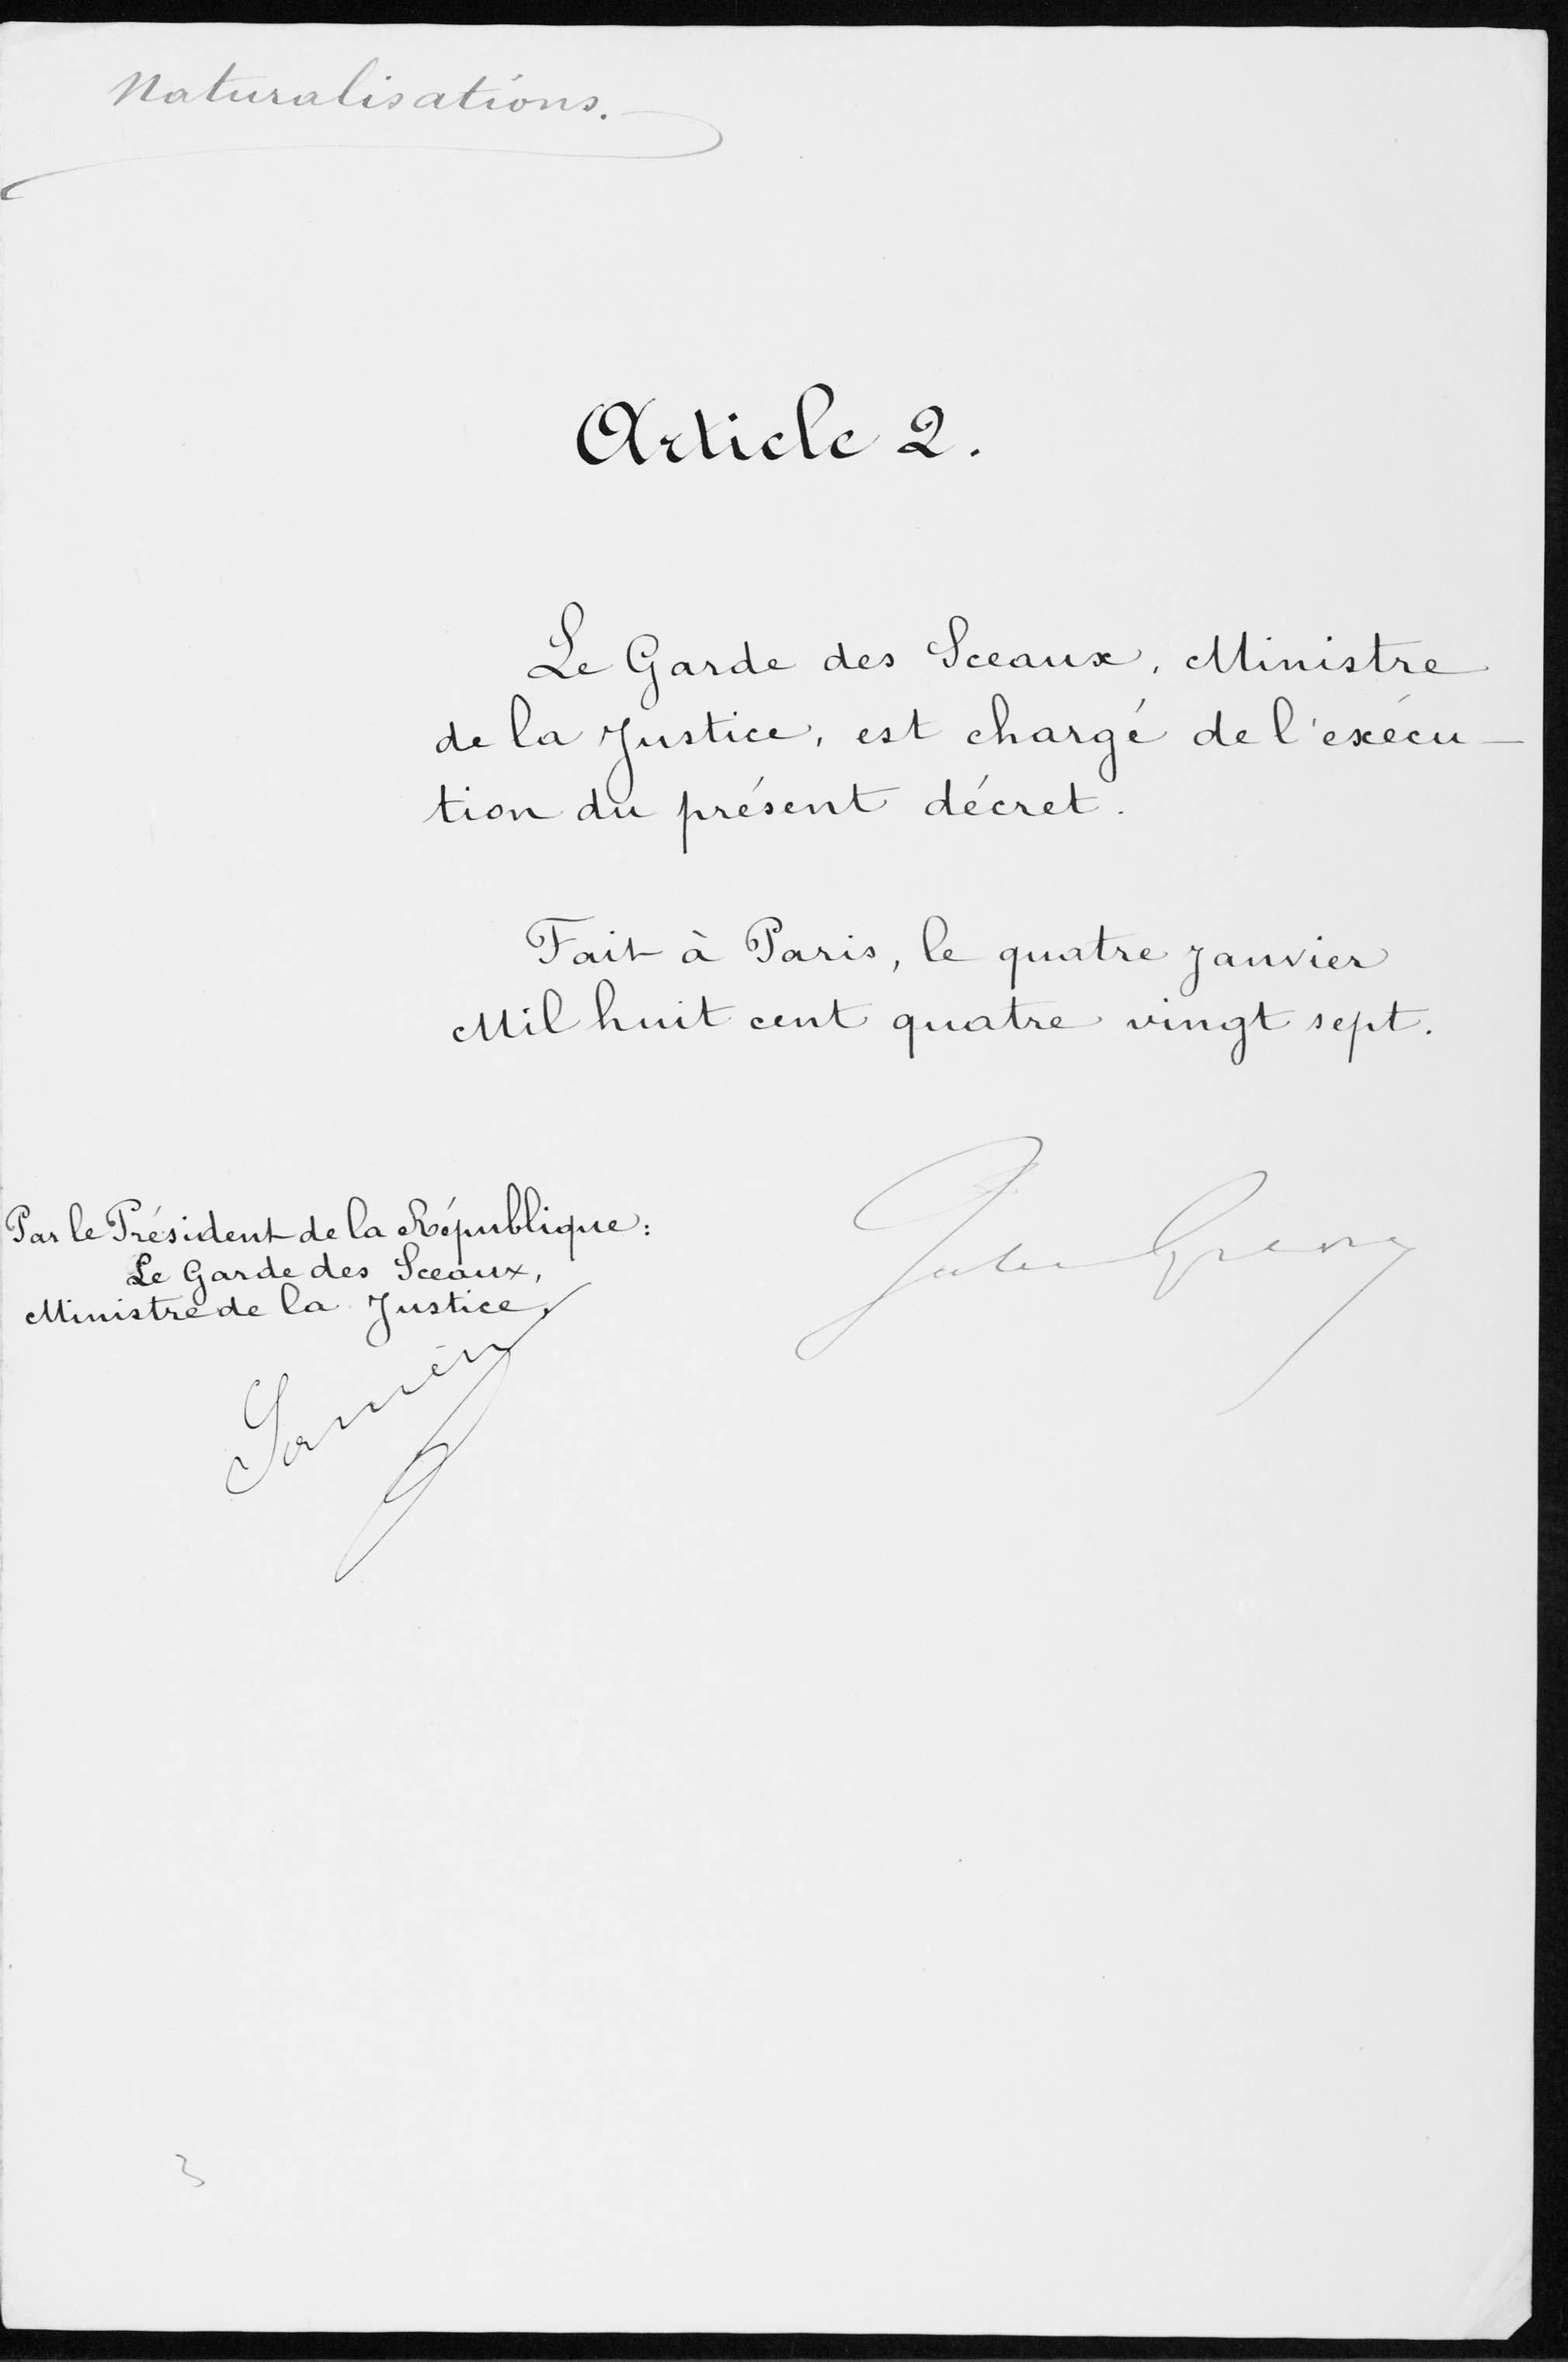 Naturalisations.
Article 2.
Le Garde des Sceaux, Ministre
de la Justice, est chargé de l'exécu-
tion du présent décret.
Fait à Paris, le quatre janvier
Mil huit cent quatre vingt sept.
Jules Grévy
Par le Président de la République:
Le Garde des Sceaux,
Ministre de la Justice,
Sarrien
3